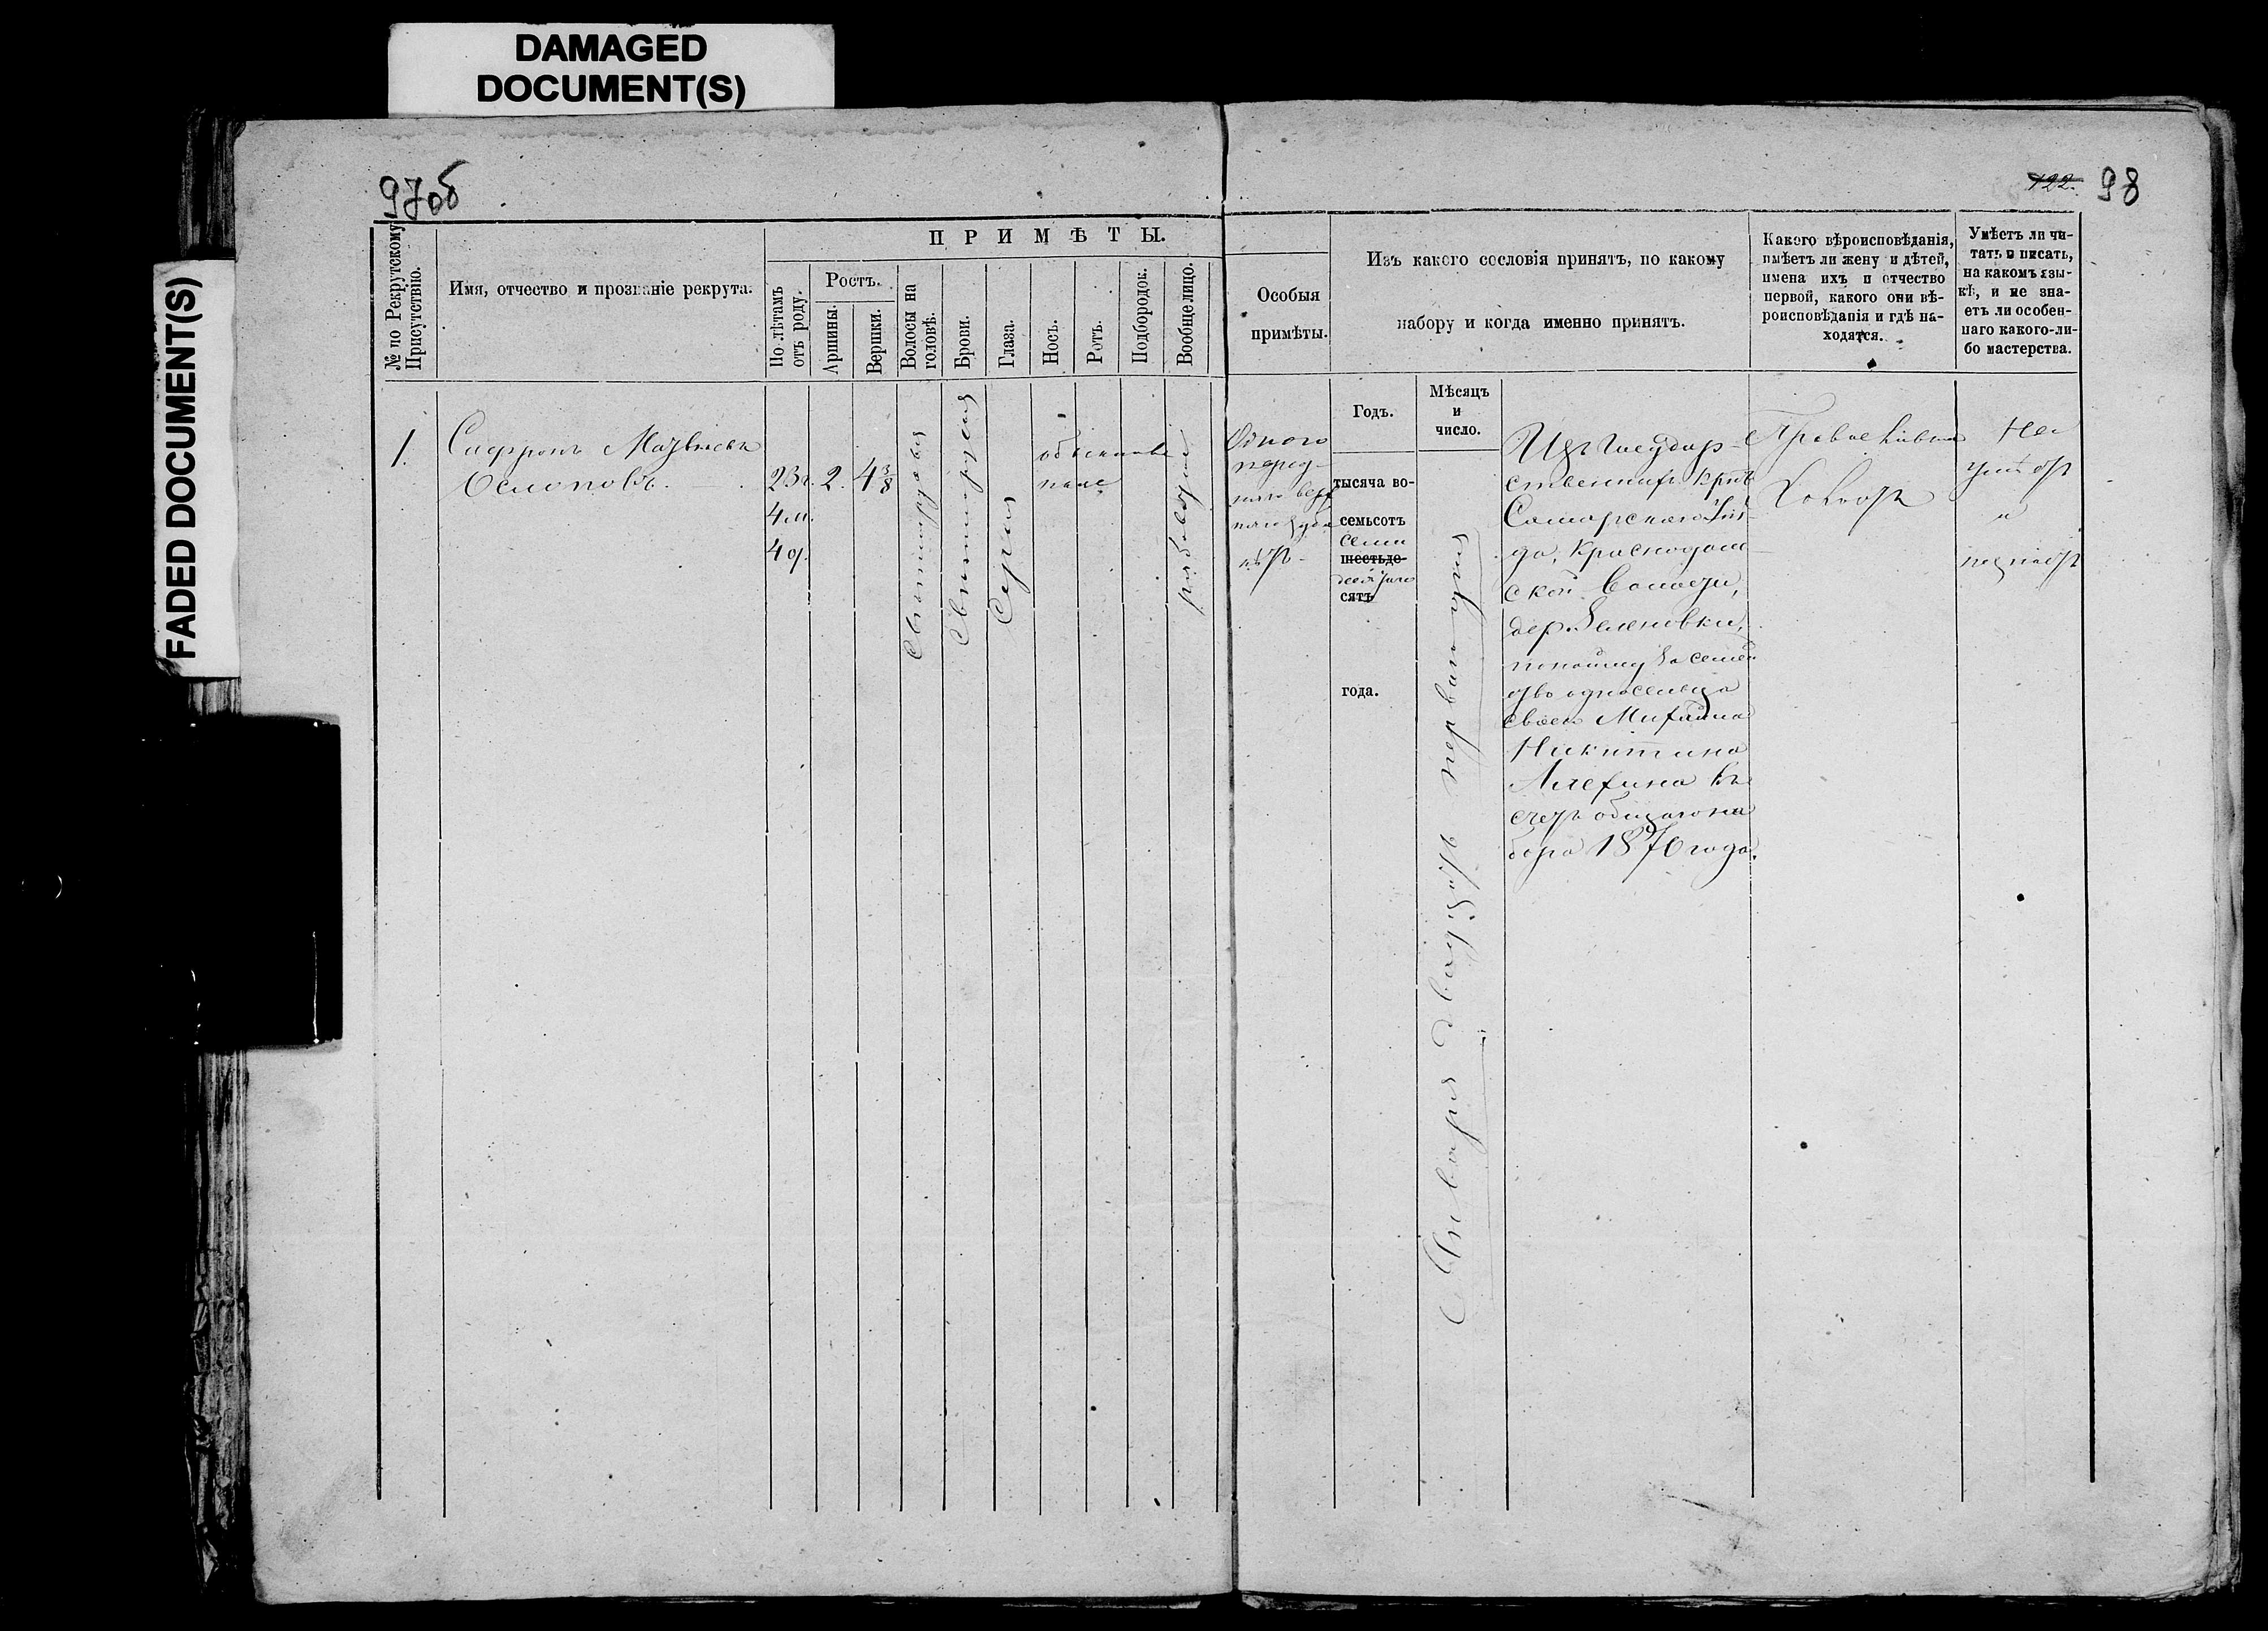 DAMAGED
DOCUMENT(S)
FADED DOCUMENT(S)
97об
122.
98
№ по Рекрутскому
Присутствію.
Имя, отчество и прозваніе рекрута.
ПРИМѢТЫ.
По лѣтамъ
отъ роду.
Ростъ.
Аршины.
Вершки.
Волосы на
головѣ.
Брови.
Глаза.
Носъ.
Ротъ.
Подбородок.
Вообще лицо.
Особыя
примѣты.
Изъ какого сословія принятъ, по какому
набору и когда именно принятъ.
Какого вѣроисповѣданія,
имѣетъ ли жену и дѣтей,
имена ихъ и отчество
первой, какого они вѣ-
роисповѣданія и гдѣ на-
ходятся.
Умѣетъ ли чи-
тать и писать,
на какомъ язы-
кѣ, и не зна-
етъ ли особен-
наго какого-ли-
бо мастерства.
Годъ.
Мѣсяцъ
и
число.
1.
Сафронъ Матвѣевъ
23г.
4м.
2.
4 3/8
Светлорусыя
Светлорусыя
Серыя
обыкнове
ные
рябоватое
Одного
перед-
няго верх
няго зуба
нѣтъ-
тысяча во-
семьсотъ
семи
шестьде-
десятаго
сятъ
года.
Января двадцать первого дня
Изъ государ-
ственныхъ крѣ
Самарскаго Уѣз-
да, Красно
ской волости,
дер. Зеленовки,
по найму за семей
ство односельца
своего Михаила
Никитина
Алехина въ
счетъ общаго на
бора 1870 года.
Православнаго
Холостъ
Не
умѣетъ
и
незнаетъ